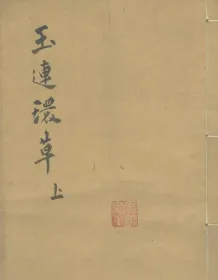 玉連環草上